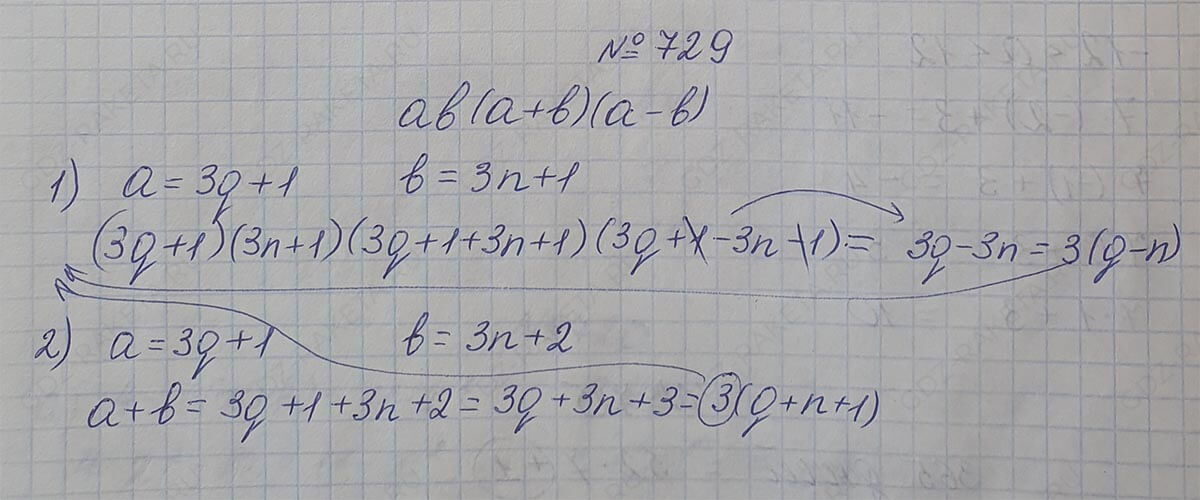 № 729
ab(a+b)(a-b)
1) a = 3q+1 b = 3n+1
(3q+1)(3n+1)(3q+1+3n+1)(3q+1-3n-1) = 3q-3n = 3(q-n)
2) a = 3q+1 b = 3n+2
a+b = 3q+1+3n+2 = 3q+3n+3 = 3(q+n+1)